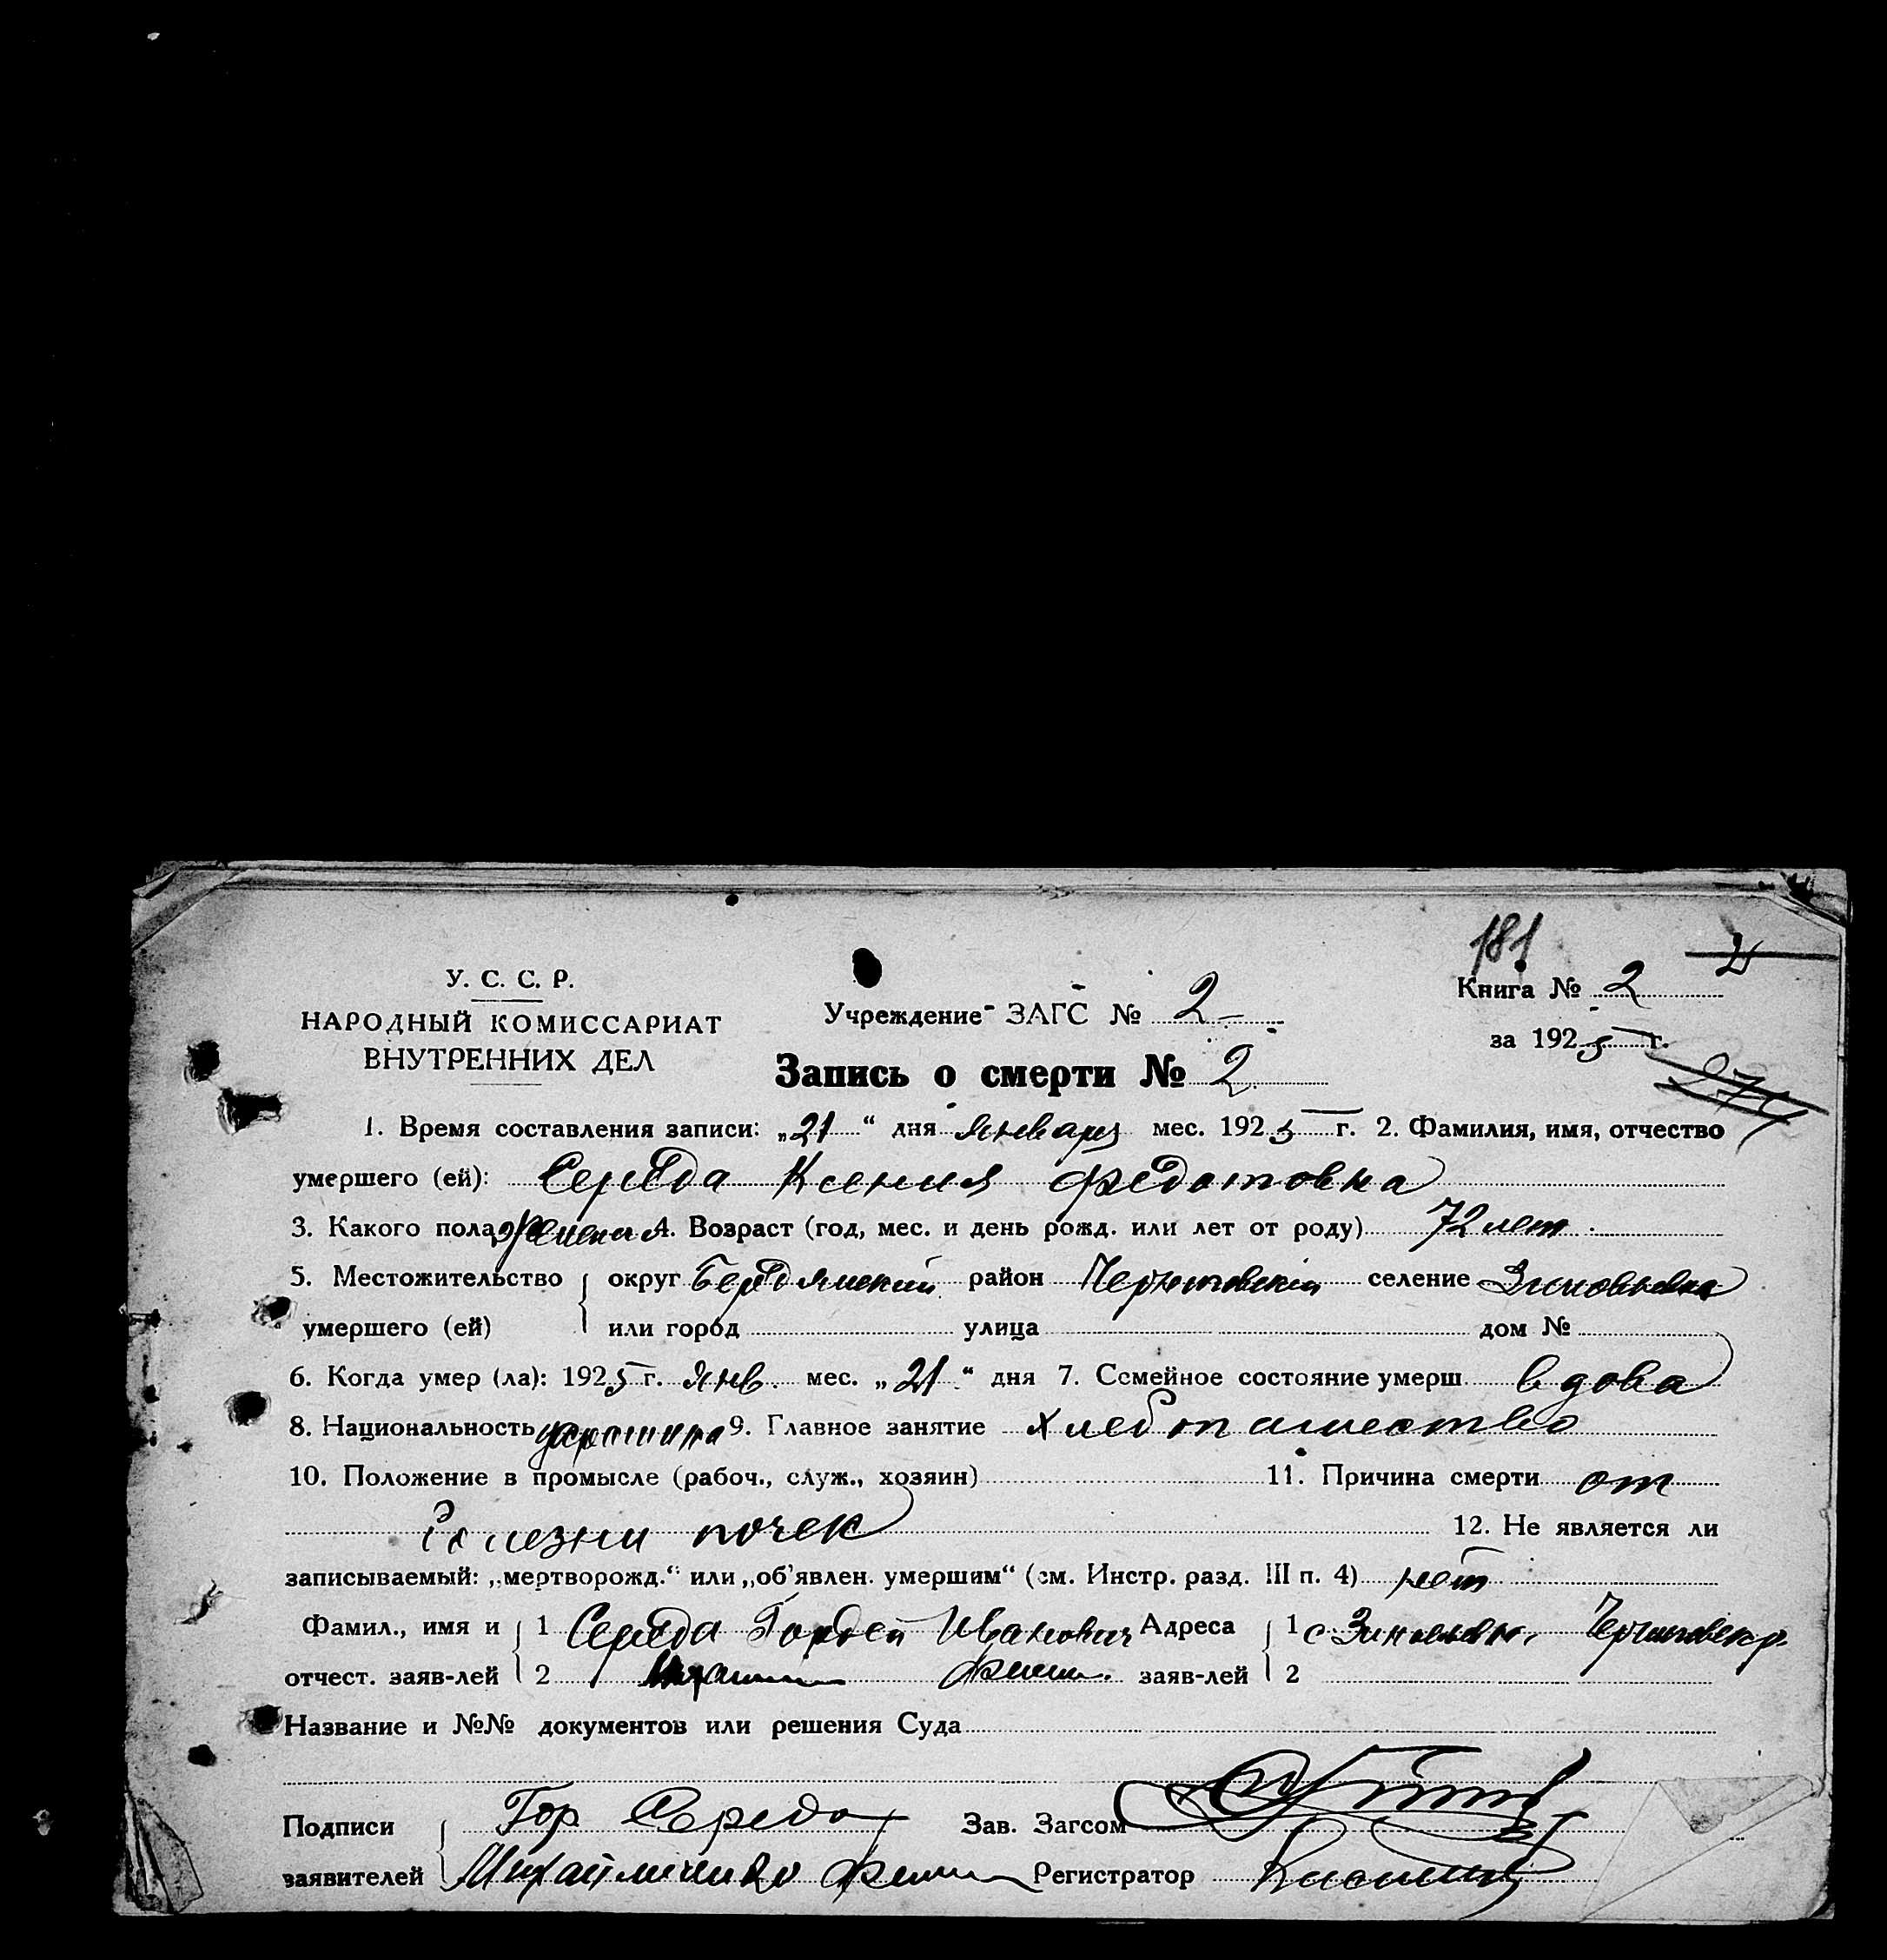 181 2
У. С. С. Р.
НАРОДНЫЙ КОМИССАРИАТ
ВНУТРЕННИХ ДЕЛ
Учреждение ЗАГС № 2
Книга № 2
за 1925 г.
274
Запись о смерти № 2
1. Время составления записи: „21“ дня января мес. 1925 г. 2. Фамилия, имя, отчество
умершего (ей): Середа Ксения Федотовна
3. Какого пола женска 4. Возраст (год, мес. и день рожд. или лет от роду) 72 лет
5. Местожительство округ Бердянский район Черниговский селение Зиновьевка
умершего (ей) или город улица дом №
6. Когда умер (ла): 1925 г. янв. мес. „21“ дня 7. Семейное состояние умерш. вдова
8. Национальность украинка 9. Главное занятие хлебопашество
10. Положение в промысле (рабоч., служ., хозяин) 11. Причина смерти от
болезни почек 12. Не является ли
записываемый: „мертворожд.“ или „об'явлен. умершим“ (см. Инстр. разд. III п. 4) нет
Фамил., имя и 1 Середа Гордей Иванович Адреса 1 с Зиновьевк. Черниговск р.
отчест. заяв-лей 2 заяв-лей 2
Название и №№ документов или решения Суда
Подписи Гор Середа Зав. Загсом
заявителей Михайличенко Регистратор